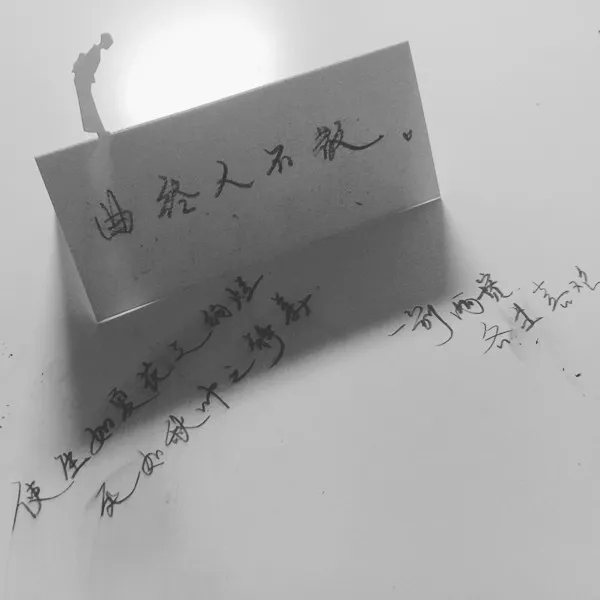 曲终人不散。
使生如夏花之绚烂
死如秋叶之静美
一别两宽
各生喜欢